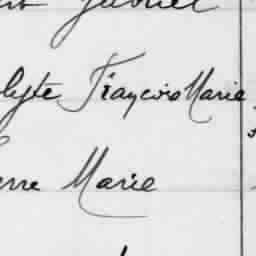 Gabriel
lyte François Marie
erre Marie